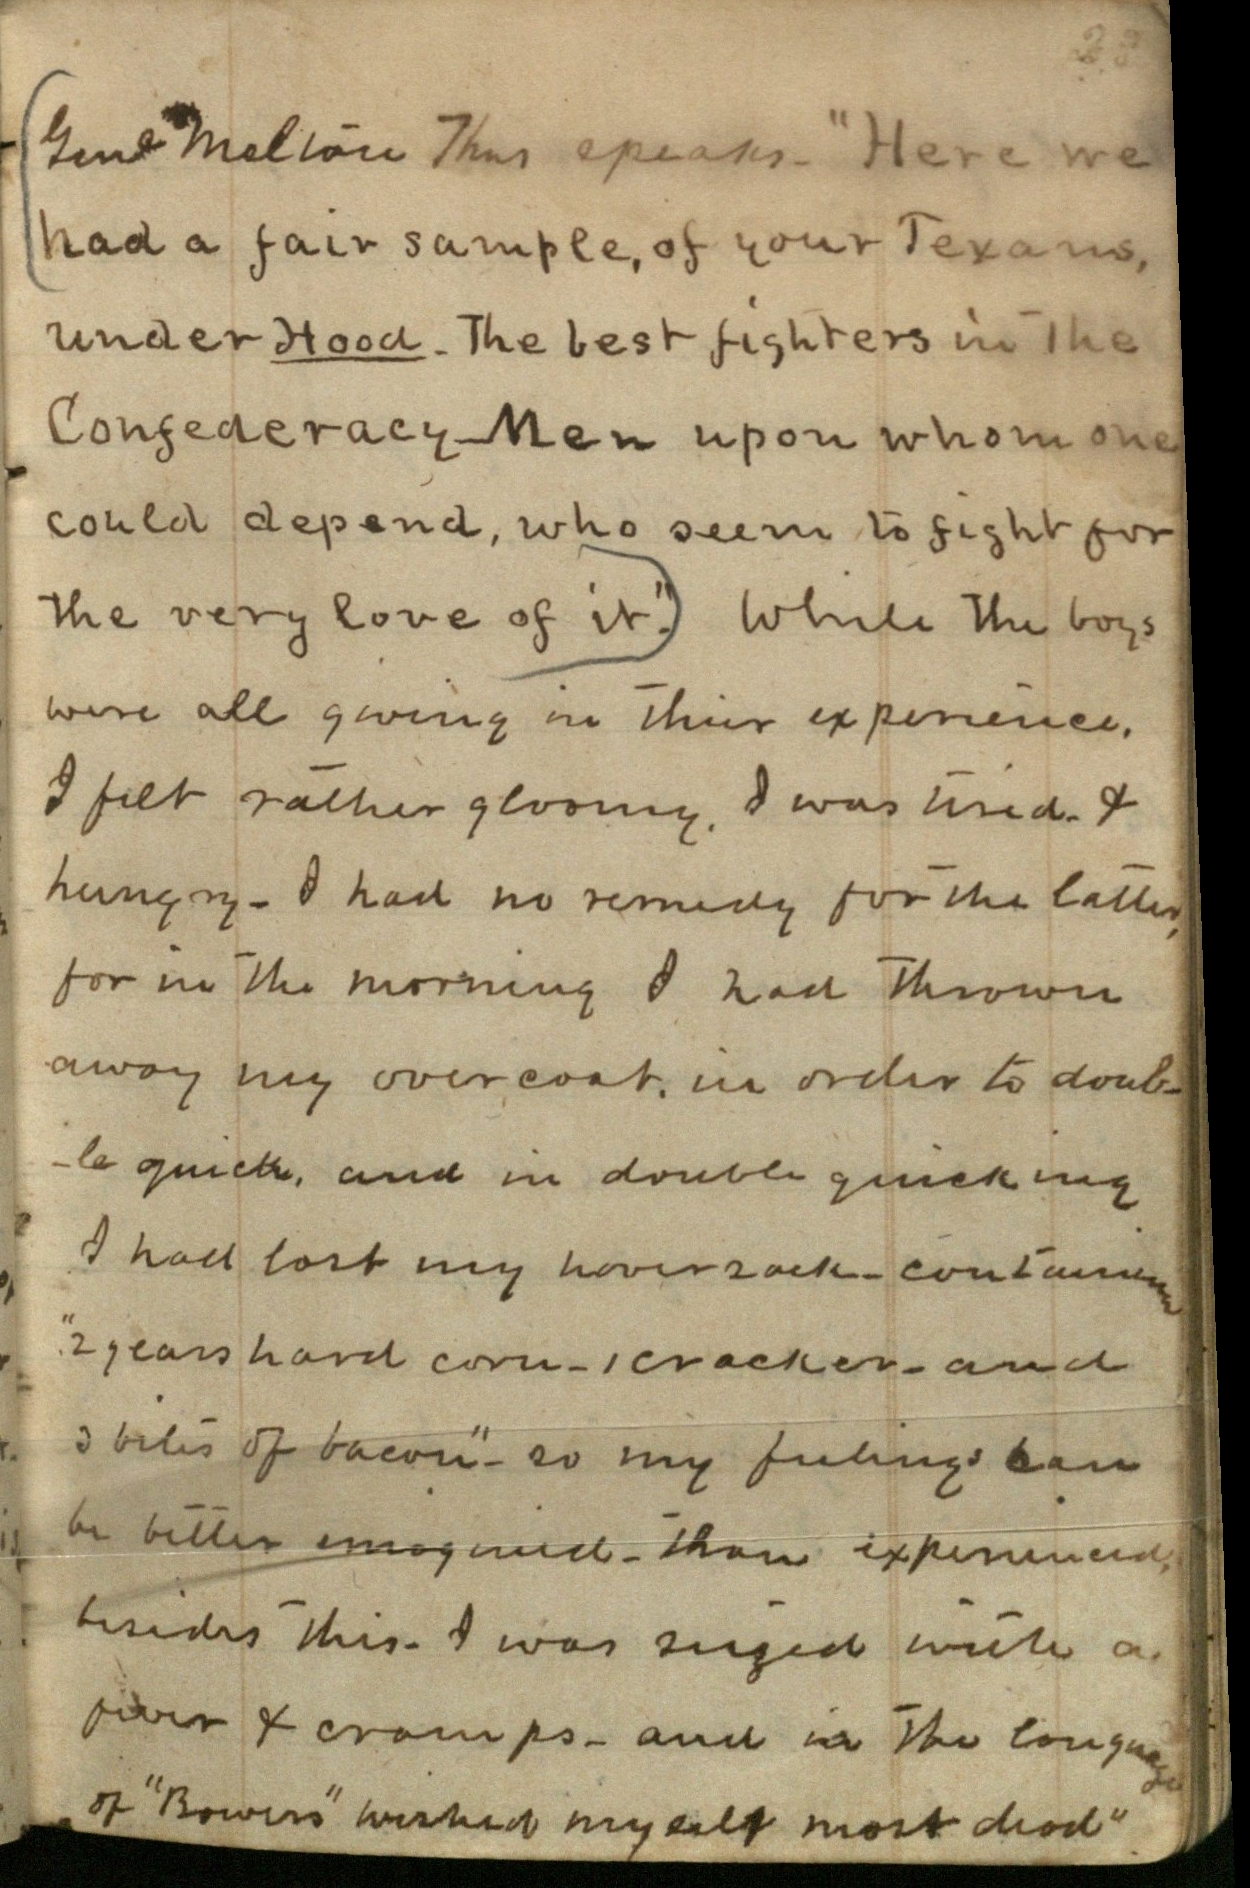 Genl Melton Thus speaks - "Here we
had a fair sample, of your Texans,
under Hood - The best fighters in The
Confederacy - Men upon whom one
could depend, who seem to fight for
the very love of it." While The boys
were all giving in thier experience.
I felt rather gloomy, I was tired - &
hungry - I had no remedy for the latter,
for in The morning I had Thrown
away my overcoat, in order to doub-
-le quick, and in double quicking
I had lost my haversack - containing
"2 years hard corn - 1 cracker - and
3 bites of bacon" - so my feelings can
be better imagined - than experienced,
besides this - I was seized with a
fever & cramps - and in The language
of "Bowers" wished myself most dead"